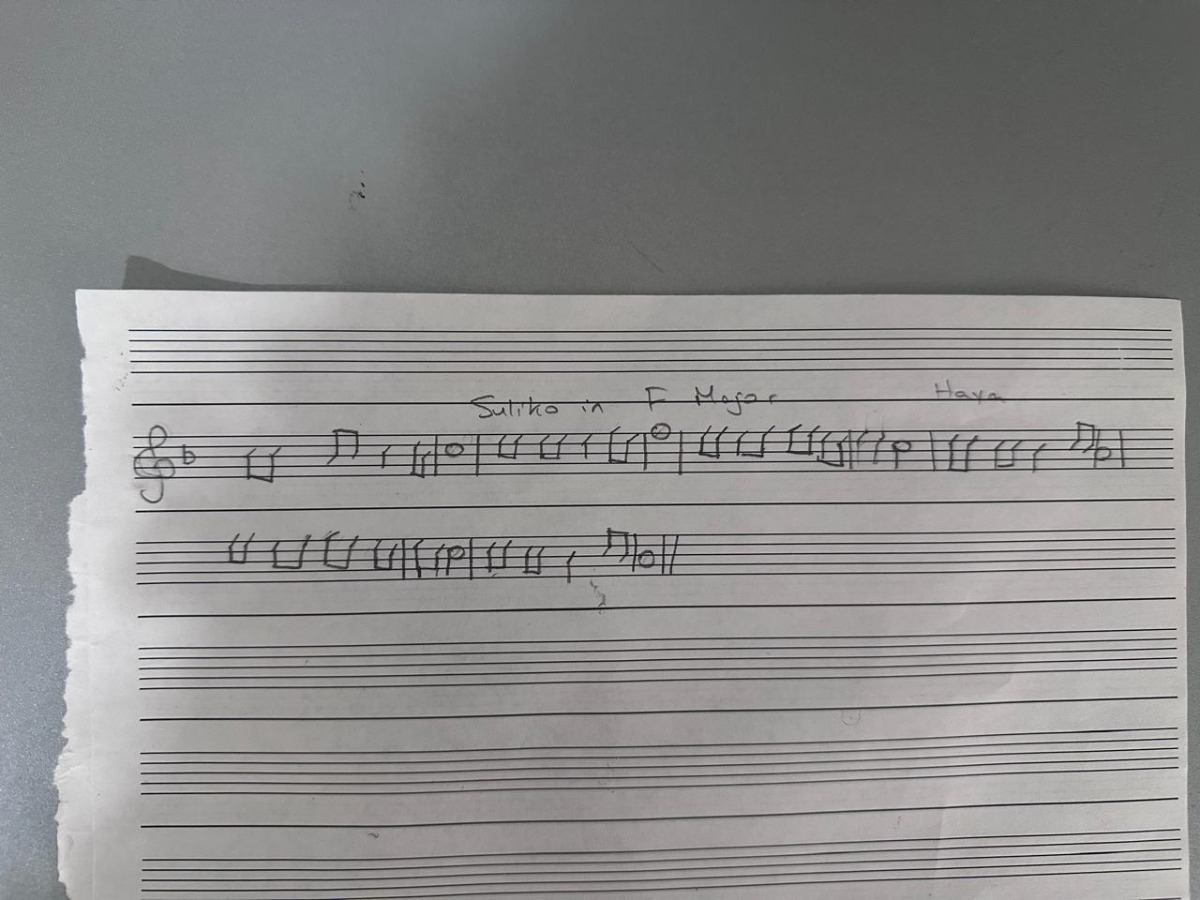 Suliko in F Major Haya